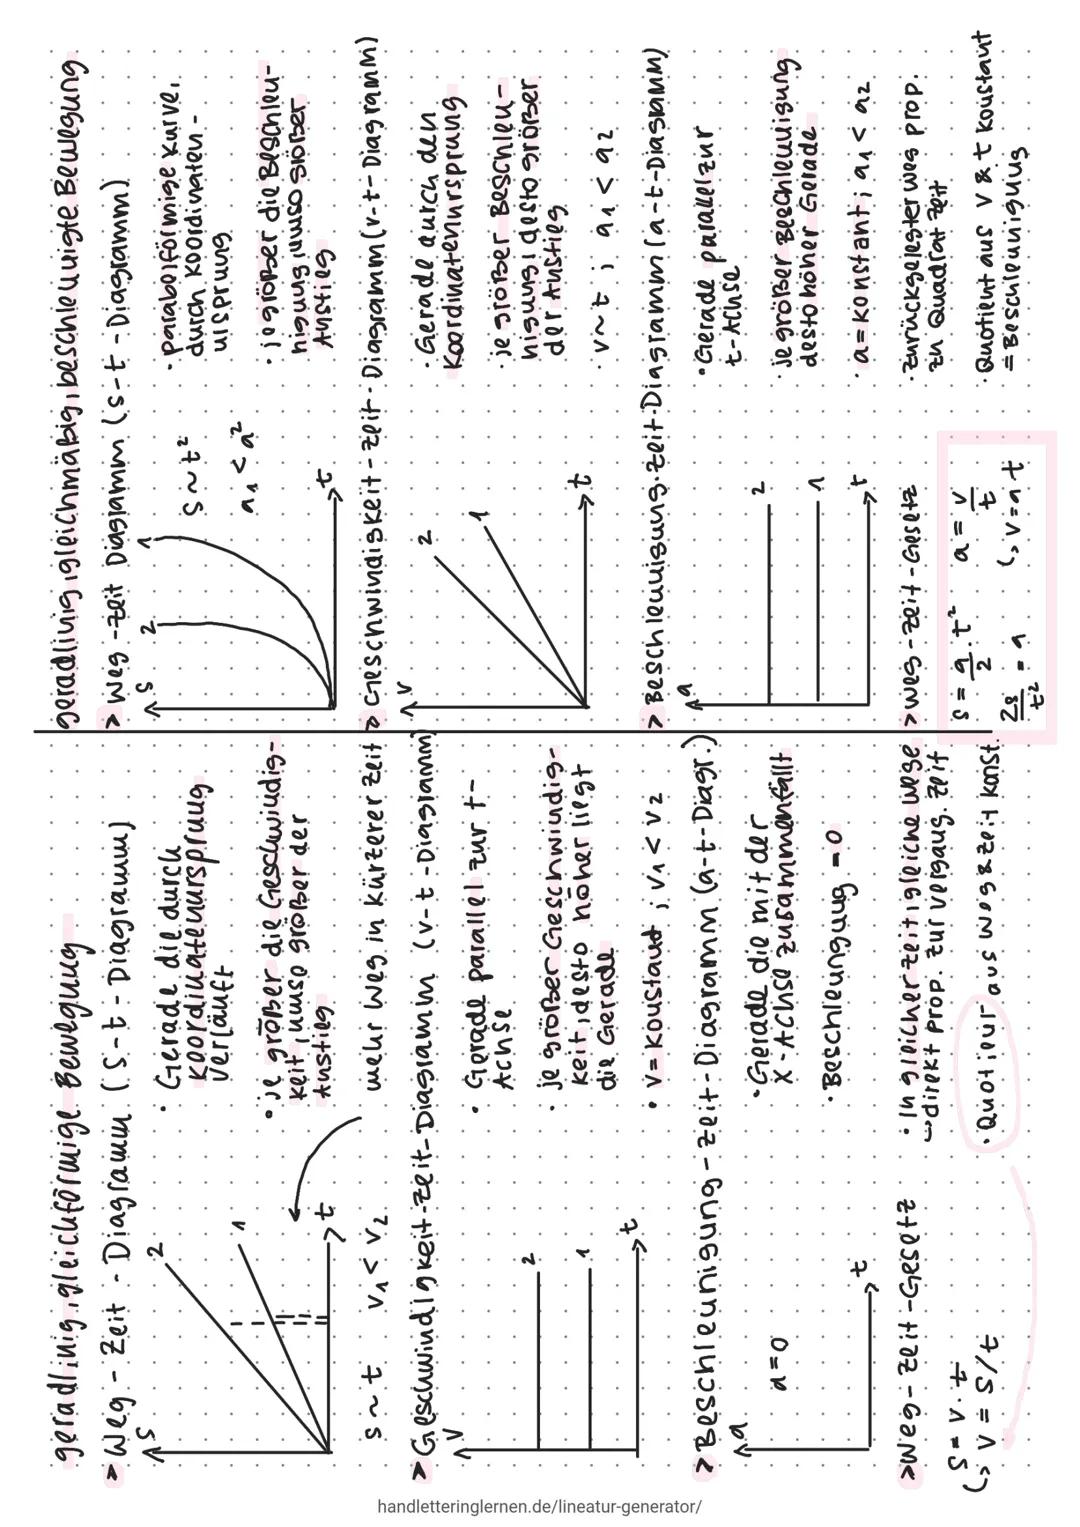 geradlinig, gleichförmige Bewegung
> Weg - Zeit - Diagramm (s-t-Diagramm)
s
2
1
t
s ~ t v1 < v2
· Gerade die durch
Koordinatenursprung
verläuft
· je größer die Geschwindig-
keit, umso größer der
Anstieg
mehr Weg in kürzerer Zeit
> Geschwindigkeit-Zeit-Diagramm (v-t-Diagramm)
v
2
1
t
· Gerade parallel zur t-
Achse
· je größer Geschwindig-
keit, desto höher liegt
die Gerade
· v = konstant ; v1 < v2
> Beschleunigung - Zeit - Diagramm (a-t-Diagr.)
a
a=0
t
· Gerade die mit der
x-Achse zusammenfällt
· Beschleunigung = 0
> Weg - Zeit - Gesetz
s = v · t
↳ v = s/t
· In gleicher Zeit, gleiche Wege
→ direkt prop. zur vergang. Zeit
· Quotieur aus Weg & Zeit konst.
geradlinig, gleichmäßig, beschleunigte Bewegung
> Weg - Zeit Diagramm (s-t-Diagramm)
s
2
1
t
s ~ t²
a1 < a²
· Parabelförmige Kurve,
durch Koordinaten-
ursprung
· je größer die Beschleu-
nigung, umso größer
Anstieg
> Geschwindigkeit - Zeit - Diagramm (v-t-Diagramm)
v
2
1
t
· Gerade durch den
Koordinatenursprung
· je größer Beschleu-
nigung, desto größer
der Anstieg
· v ~ t ; a1 < a2
> Beschleunigung-Zeit-Diagramm (a-t-Diagramm)
a
2
1
t
· Gerade parallel zur
t-Achse
· je größer Beschleunigung
desto höher Gerade
· a = konstant ; a1 < a2
> Weg - Zeit - Gesetz
s = a/2 · t² a = v/t
2s/t² = a ↳ v = a t
· Zurückgelegter Weg prop.
zu Quadrat Zeit
· Quotient aus v & t konstant
= Beschleunigung
handletteringlernen.de/lineatur-generator/